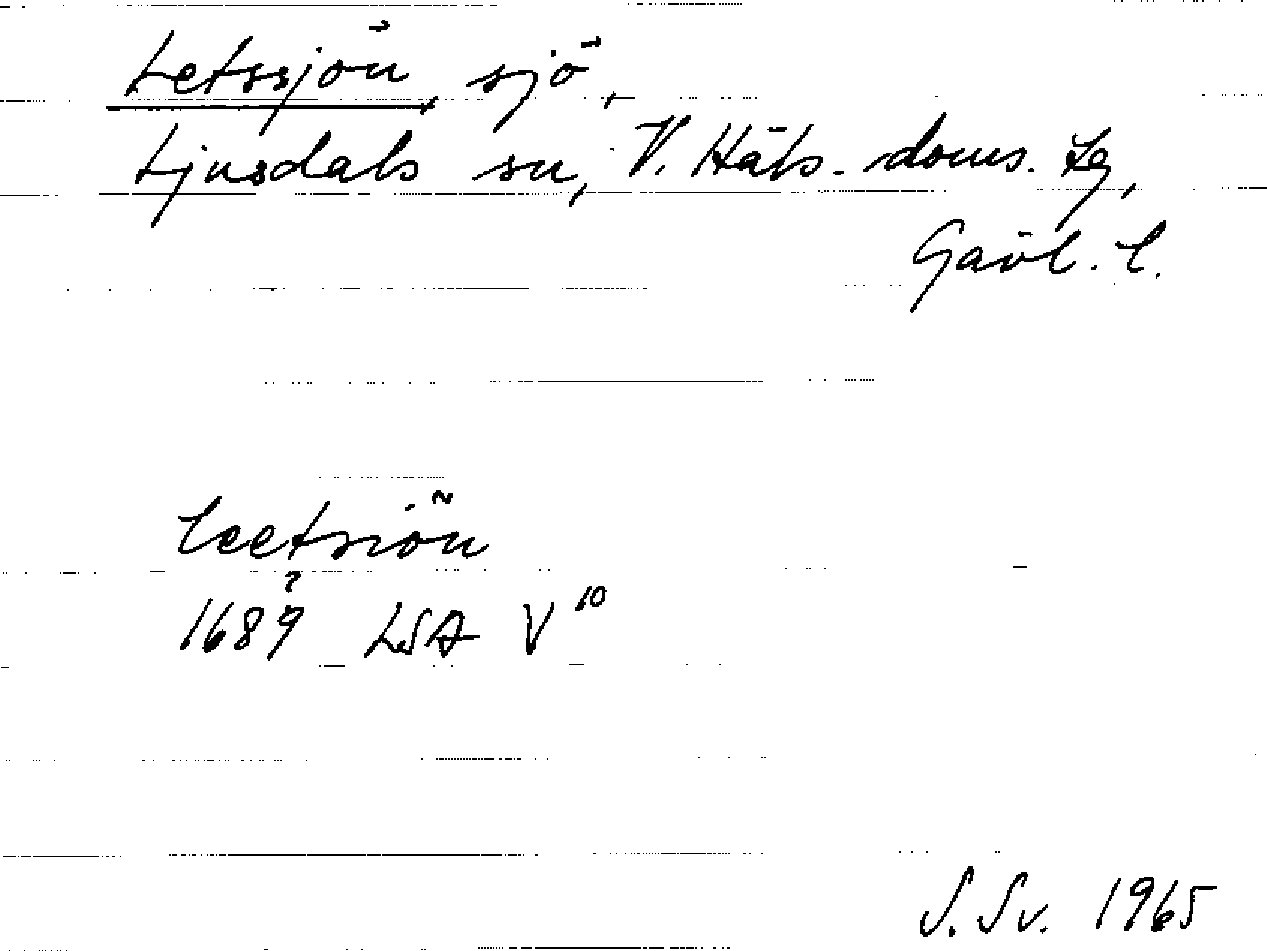 Letssjön, sjö,
Ljusdals sn, V. Häls. doms. Lg,
Gävl. l.
Leetsiön
?
1689 LSA V 10
S. Sv. 1965